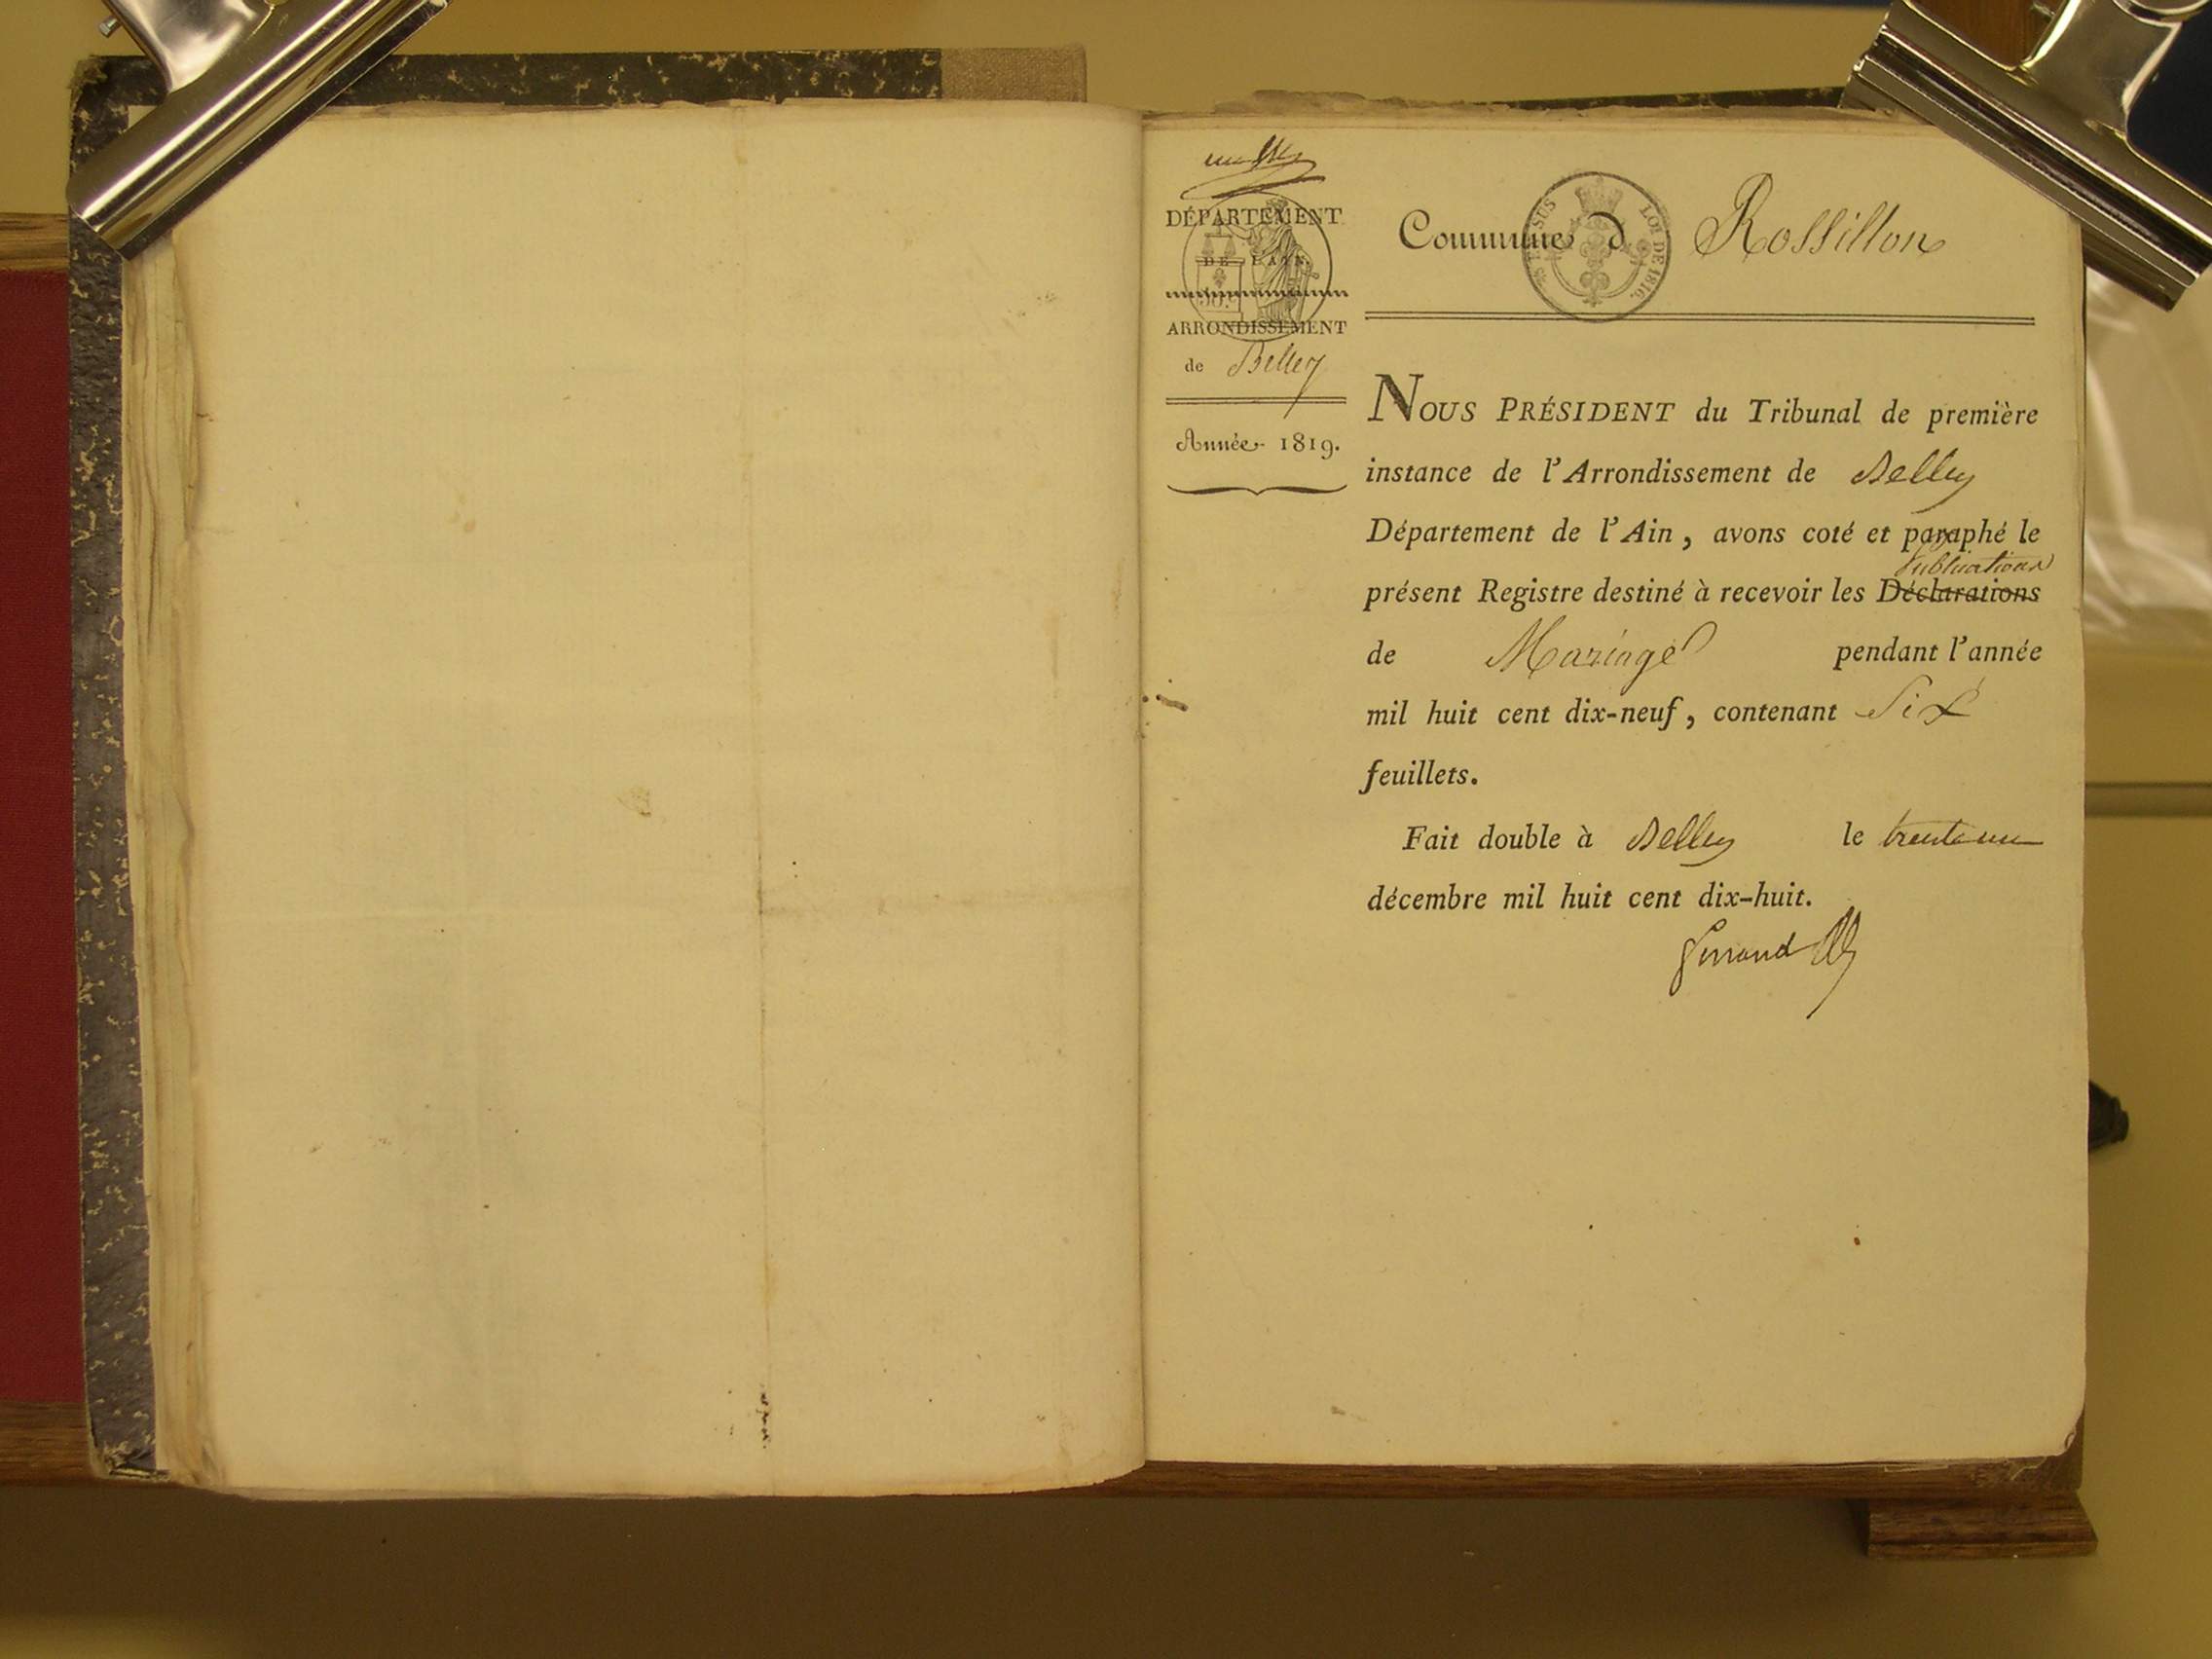 DÉPARTEMENT
DE L'AIN.
ARRONDISSEMENT
de Belley
Année 1819.
Commune d Rossillon
EN SUS
LOI DE 1816.
NOUS PRÉSIDENT du Tribunal de première
instance de l'Arrondissement de Belley
Département de l'Ain, avons coté et paraphé le
publications
présent Registre destiné à recevoir les Déclarations
de Mariage pendant l'année
mil huit cent dix-neuf, contenant Six
feuillets.
Fait double à Belley le trente un
décembre mil huit cent dix-huit.